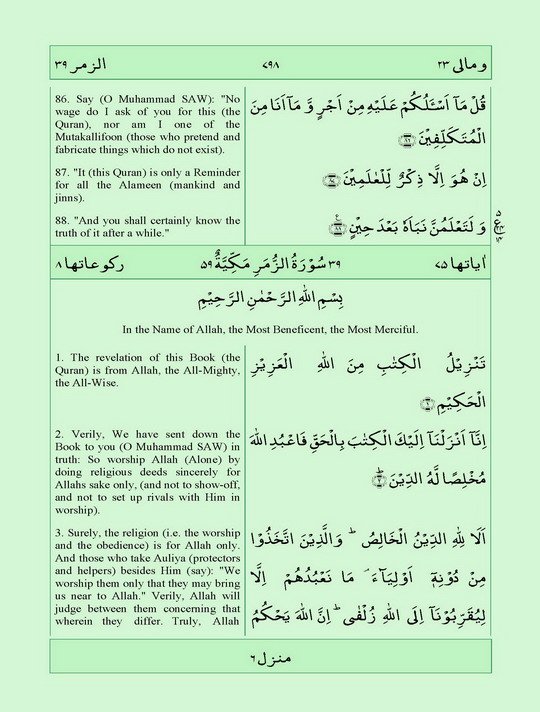 الزمر ٣٩
٧٩٨
ومالی ٢٣
86. Say (O Muhammad SAW): "No
wage do I ask of you for this (the
Quran), nor am I one of the
Mutakallifoon (those who pretend and
fabricate things which do not exist).
قُلْ مَاۤ اَسْـَٔلُكُمْ عَلَيْهِ مِنْ اَجْرٍ وَّ مَاۤ اَنَا مِنَ
الْمُتَكَلِّفِيْنَ ﴿٨٦﴾
87. "It (this Quran) is only a Reminder
for all the Alameen (mankind and
jinns).
اِنْ هُوَ اِلَّا ذِكْرٌ لِّلْعٰلَمِيْنَ ﴿٨٧﴾
88. "And you shall certainly know the
truth of it after a while."
وَ لَتَعْلَمُنَّ نَبَاَهٗ بَعْدَ حِيْنٍ ﴿٨٨﴾
اٰیاتها ٧٥
٣٩ سُوْرَةُ الزُّمَرِ مَكِّيَّةٌ ٥٩
رکوعاتها ٨
بِسْمِ اللهِ الرَّحْمٰنِ الرَّحِيْمِ
In the Name of Allah, the Most Beneficent, the Most Merciful.
1. The revelation of this Book (the
Quran) is from Allah, the All-Mighty,
the All-Wise.
تَنْزِيْلُ الْكِتٰبِ مِنَ اللهِ الْعَزِيْزِ
الْحَكِيْمِ ﴿١﴾
2. Verily, We have sent down the
Book to you (O Muhammad SAW) in
truth: So worship Allah (Alone) by
doing religious deeds sincerely for
Allahs sake only, (and not to show-off,
and not to set up rivals with Him in
worship).
اِنَّاۤ اَنْزَلْنَاۤ اِلَيْكَ الْكِتٰبَ بِالْحَقِّ فَاعْبُدِ اللهَ
مُخْلِصًا لَّهُ الدِّيْنَ ﴿٢﴾
3. Surely, the religion (i.e. the worship
and the obedience) is for Allah only.
And those who take Auliya (protectors
and helpers) besides Him (say): "We
worship them only that they may bring
us near to Allah." Verily, Allah will
judge between them concerning that
wherein they differ. Truly, Allah
اَلَا لِلّٰهِ الدِّيْنُ الْخَالِصُ ؕ وَالَّذِيْنَ اتَّخَذُوْا
مِنْ دُوْنِهٖۤ اَوْلِيَآءَ ۘ مَا نَعْبُدُهُمْ اِلَّا
لِيُقَرِّبُوْنَاۤ اِلَى اللهِ زُلْفٰى ؕ اِنَّ اللهَ يَحْكُمُ
منزل ٦